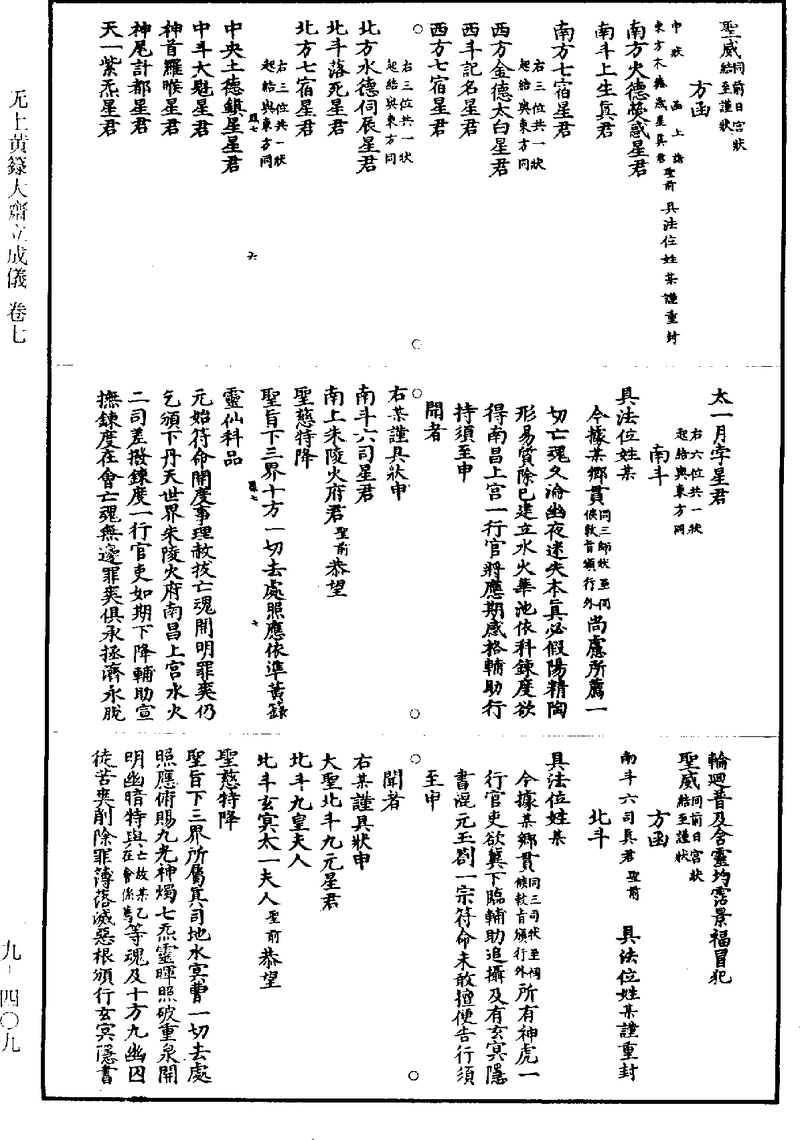 聖威同前日宮狀
結至謹狀
方函
申狀　函上請
東方木德歲星真君聖前　具法位姓某謹重封
南方火德熒惑星君
南斗上生真君
南方七宿星君
右三位共一狀
起結與東方同
西方金德太白星君
西斗記名星君
西方七宿星君
右三位共一狀
起結與東方同
北方水德伺辰星君
北斗落死星君
北方七宿星君
右三位共一狀
起結與東方同
中央土德鎮星星君
中斗大魁星君
神首羅睺星君
神尾計都星君
天一紫炁星君
太一月孛星君
右六位共一狀
起結與東方同
南斗
具法位姓某
今據某鄉貫同三師狀至聞
候敕旨頒行外尚慮所薦一
切亡魂久淪幽夜迷失本真必假陽精陶
形易質除已建立水火華池依科鍊度欲
得南昌上宮一行官將應期感格輔助行
持須至申
聞者
右某謹具狀申
南斗六司星君
南上朱陵火府君聖前恭望
聖慈特降
聖旨下三界十方一切去處照應依準黃籙
靈仙科品
元始符命開度事理赦拔亡魂開明罪爽仍
乞頒下丹天世界朱陵火府南昌上宮水火
二司差撥鍊度一行官吏如期下降輔助宣
撫鍊度在會亡魂無邊罪爽俱承拯濟永脫
輪迴普及含靈均霑景福冒犯
聖威同前日宮狀
結至謹狀
方函
南斗六司真君聖前　具法位姓某謹重封
北斗
具法位姓某
今據某鄉貫同三司狀至聞
候敕旨頒行外所有神虎一
行官吏欲冀下臨輔助追攝及有玄冥隱
書混元玉劄一宗符命未敢擅便告行須
至申
聞者
右某謹具狀申
大聖北斗九元星君
北斗九皇夫人
北斗玄冥太一夫人聖前恭望
聖慈特降
聖旨下三界所屬真司地水冥曹一切去處
照應俯賜九光神燭七炁靈暉照破重泉開
明幽暗特與亡故某乙
在會係薦等魂及十方九幽囚
徒苦爽削除罪簿落滅惡根頒行玄冥隱書
无上黄籙大齋立成儀　卷七
九-四〇九